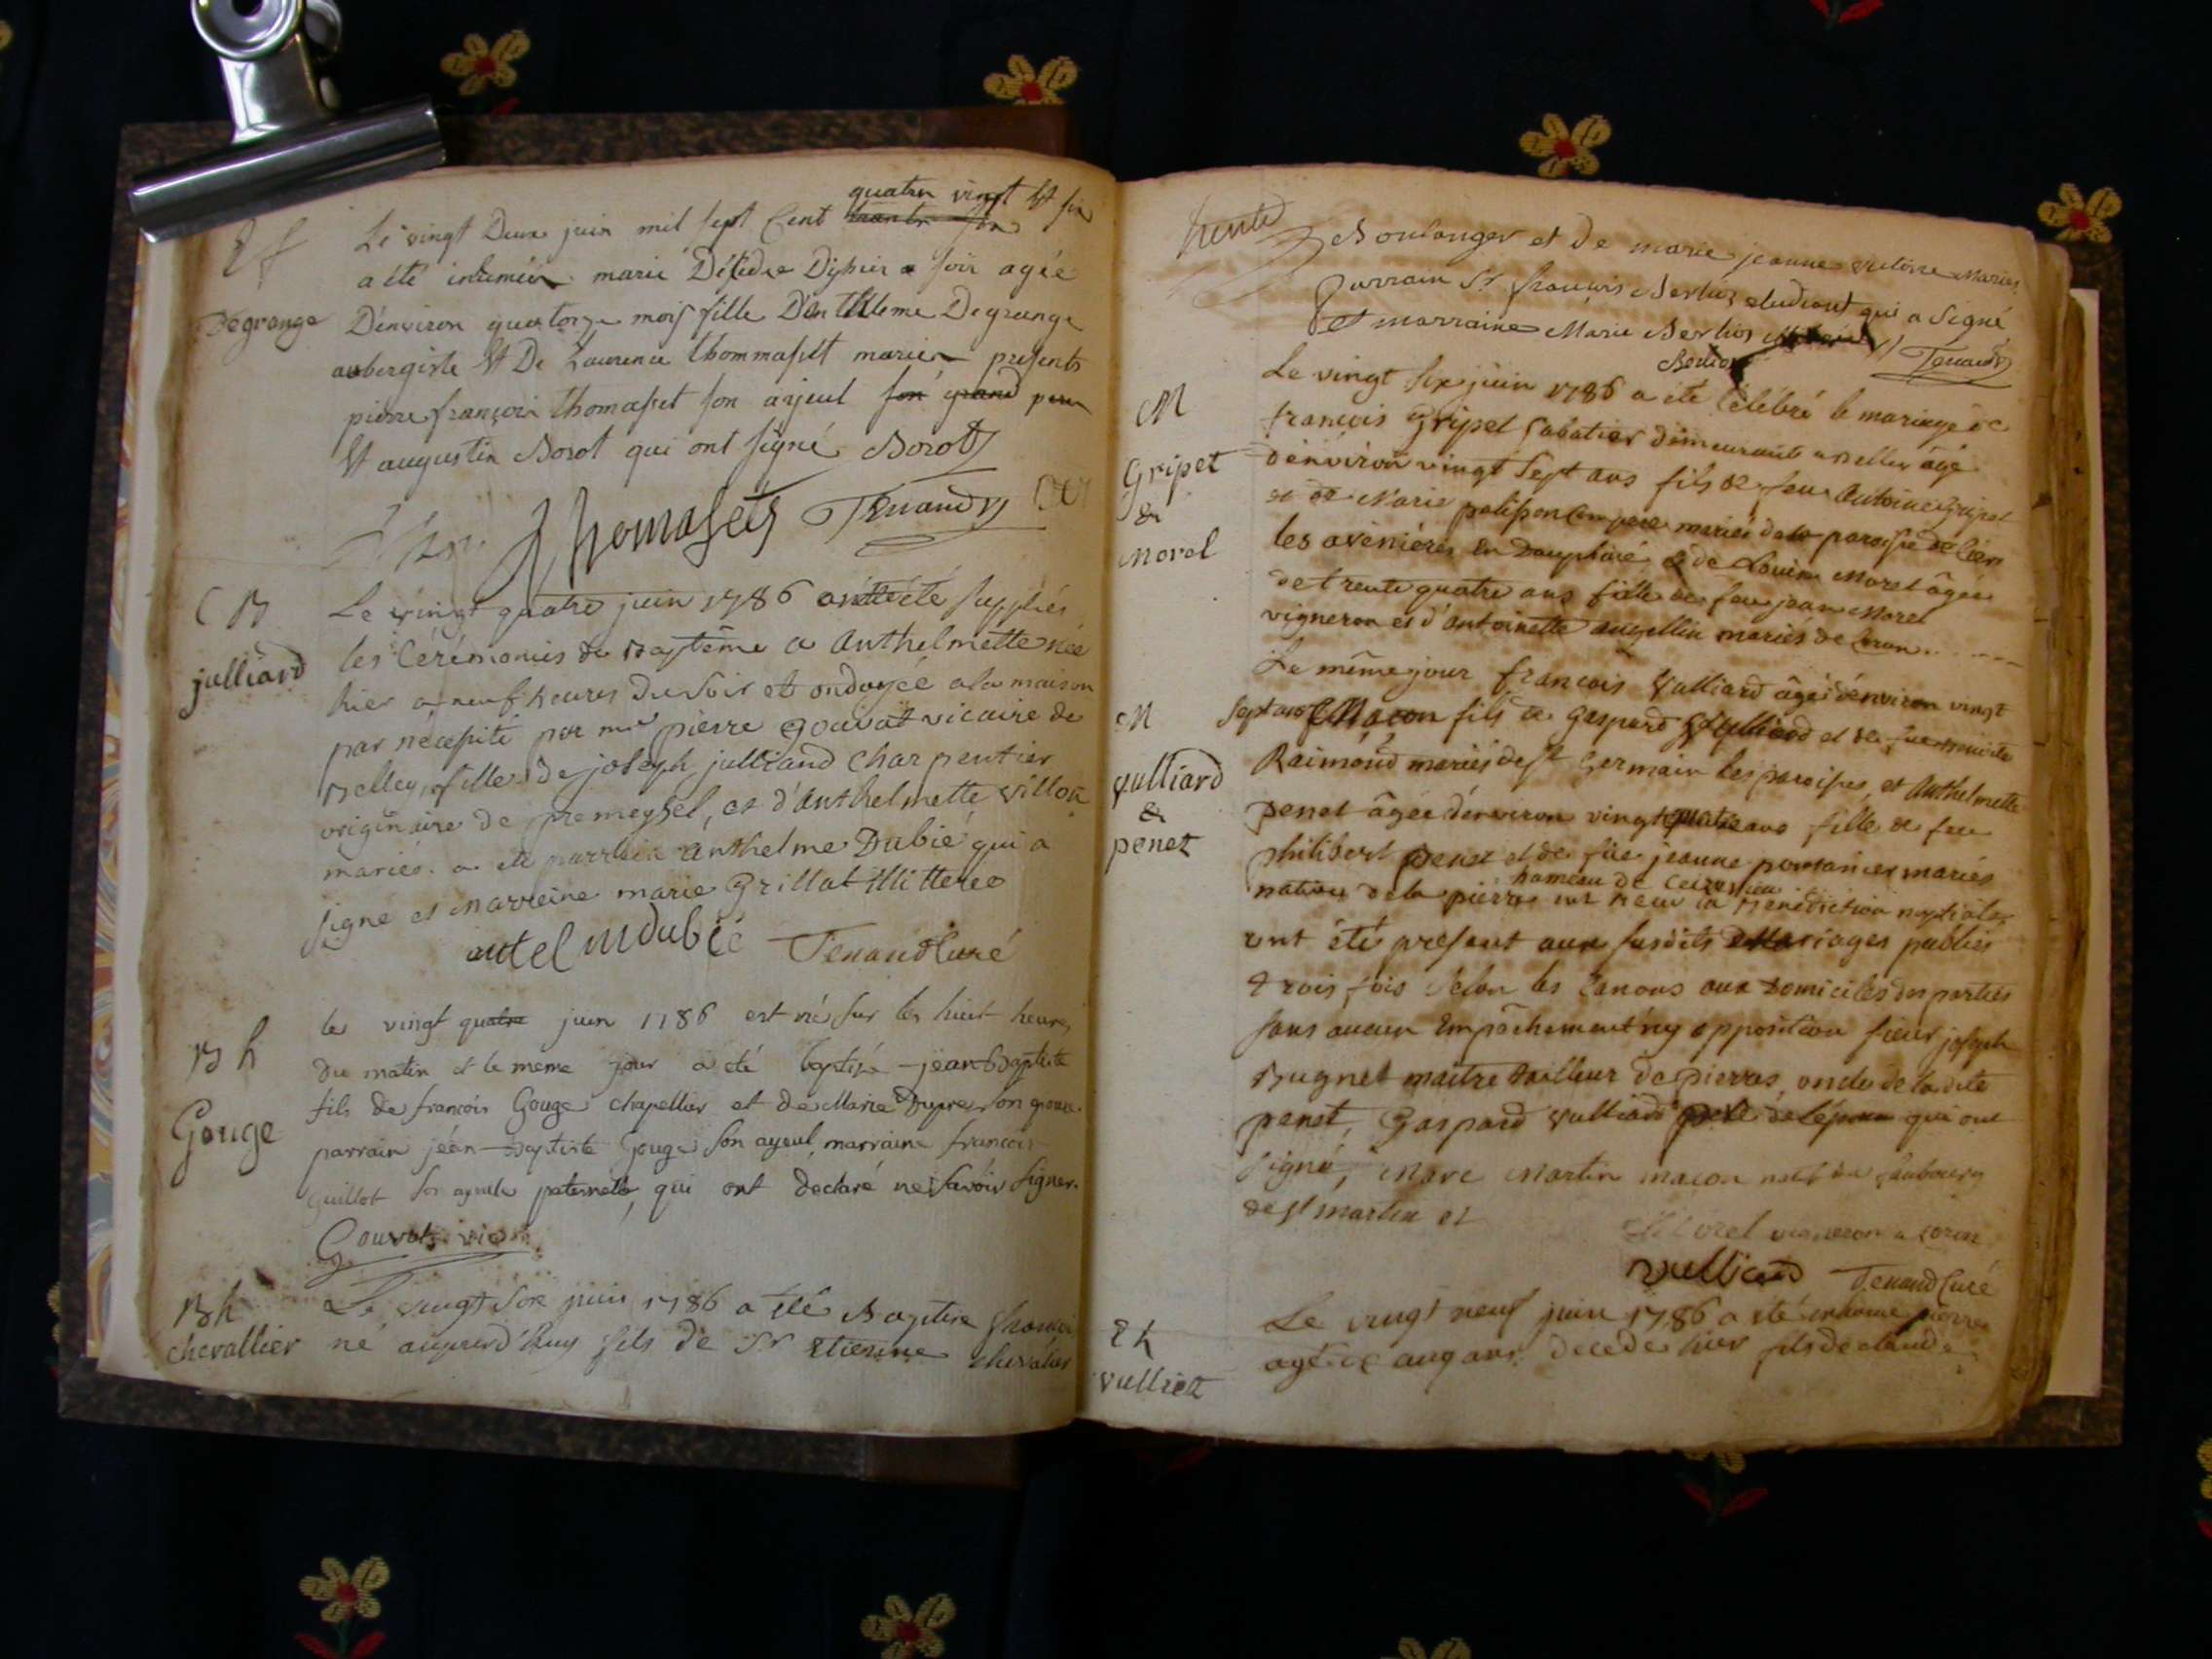 quatre vingt et six
Ef Le vingt Deux juin mil sept Cent trante six
a été inhumée marie agée
Degrange D'environ quatorze mois fille D'anthelme Degrange
aubergiste et De Laurence thommasset mariés presents
pierre françois thomasset son ayeul son grand pere
et augustin Borot qui ont signé Borot
Thomasset Tenand
CB Le vingt quatre juin 1786 été suppliés
julliard les Cérémonies du Baptême a Anthelmette née
hier a neuf heures du soir et ondoyée a la maison
par nécessité par mr pierre gouvat vicaire de
Belley, fille de joseph julliand charpentier
originaire de premeysel, et d'Anthelmette villon
mariés. a été parrain anthelme Dubié qui a
signe et marreine marie Grillat illitteree
antelmdubié Tenand Curé
Bh le vingt quatre juin 1786 est né sur les huit heures
du matin et le meme jour a été baptisé jean-Baptiste
Gouge fils de francois Gouge chapellier et de Marie Dupre son epouse.
parrain jean-Baptiste Gouge son ayeul, marraine francoise
guillot son ayeule paternelle, qui ont declaré ne savoir signer.
Gouvat vic
Bh Le vingt six juin 1786 a été Baptise
chevallier né aujourd'huy fils de Sr Etienne chevalier
Boulanger et de marie jeanne mariés
parrain Sr françois Berlioz etudiant qui a signé
et marraine Marie Berlioz
Berlioz Tenand
M Le vingt six juin 1786 a été célébré le mariage de
Gripet francois Gripet Sabatier demeurant a Belley âgé
& d'environ vingt sept ans fils de feu Antoine Gripet
Morel et de Marie mariés de la paroisse de
les avenières en Dauphiné & de Louise Morel âgée
de trente quatre ans fille de feu jean Morel
vigneron et d'antoinette mariés de Coron
M Le même jour françois Vulliard âgé d'environ vingt
sept ans Maçon fils de Gaspard Vulliard et de
Vulliard Raimond mariés de st Germain les paroisses, et Anthelmette
& penet âgée d'environ vingt quatre ans fille de feu
penet philibert penet et de jeanne mariés
hameau de Ceizerieu
natives de la pierre ont reçu la Bénédiction nuptiale
ont été present aux susdits Mariages publiés
trois fois selon les Canons aux Domiciles des parties
sans aucun Empêchement ny opposition sieur joseph
Bugnet maitre tailleur de pierres, oncle de ladite
penet, Gaspard Vulliard pere de l'époux qui ont
signé, Marc Martin macon natif du faubourg
de st martin et Morel vigneron a coron
Vulliard Tenand Curé
Eh Le vingt neuf juin 1786 a été inhumé pierre
Vulliet agé de cinq ans decedé hier fils de claude